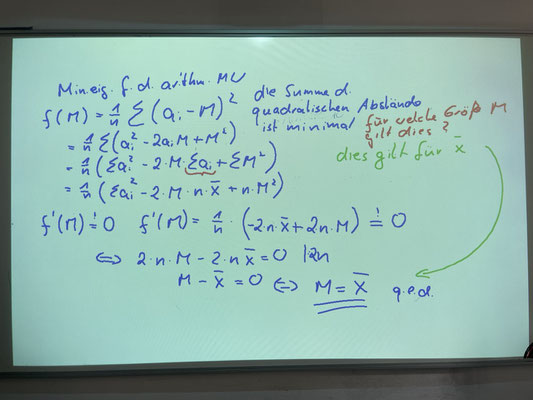 Min.eig. f. d. arithm. MW
f(M) = 1/n Σ (aᵢ - M)²
die Summe d.
quadratischen Abstände
ist minimal für welche Größe M
gilt dies?
dies gilt für x̄
= 1/n Σ(aᵢ² - 2aᵢM + M²)
= 1/n (Σaᵢ² - 2·M·Σaᵢ + ΣM²)
= 1/n (Σaᵢ² - 2·M·n·x̄ + n·M²)
f'(M) =! 0 f'(M) = 1/n · (-2·n·x̄ + 2n·M) =! 0
⇔ 2·n·M - 2·n·x̄ = 0 |:2n
M - x̄ = 0 ⇔ M = x̄ q.e.d.